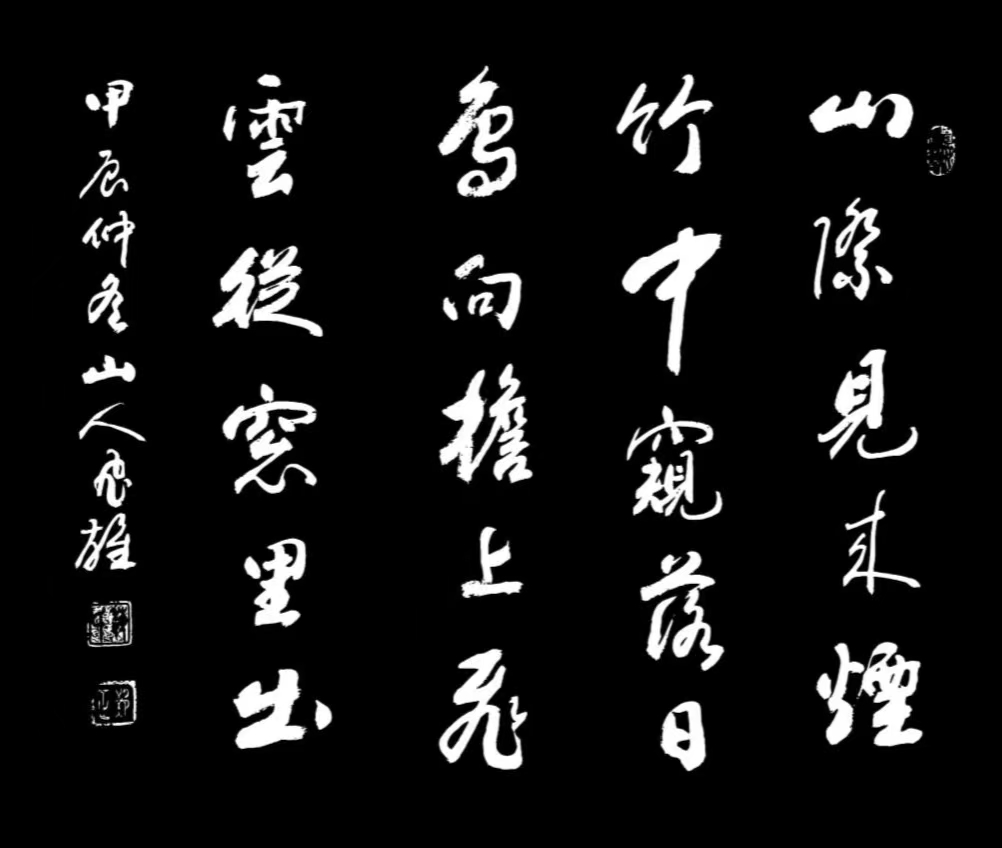 山際見来煙
竹中窺落日
鳥向檐上飛
雲從窓里出
甲辰仲冬山人雄